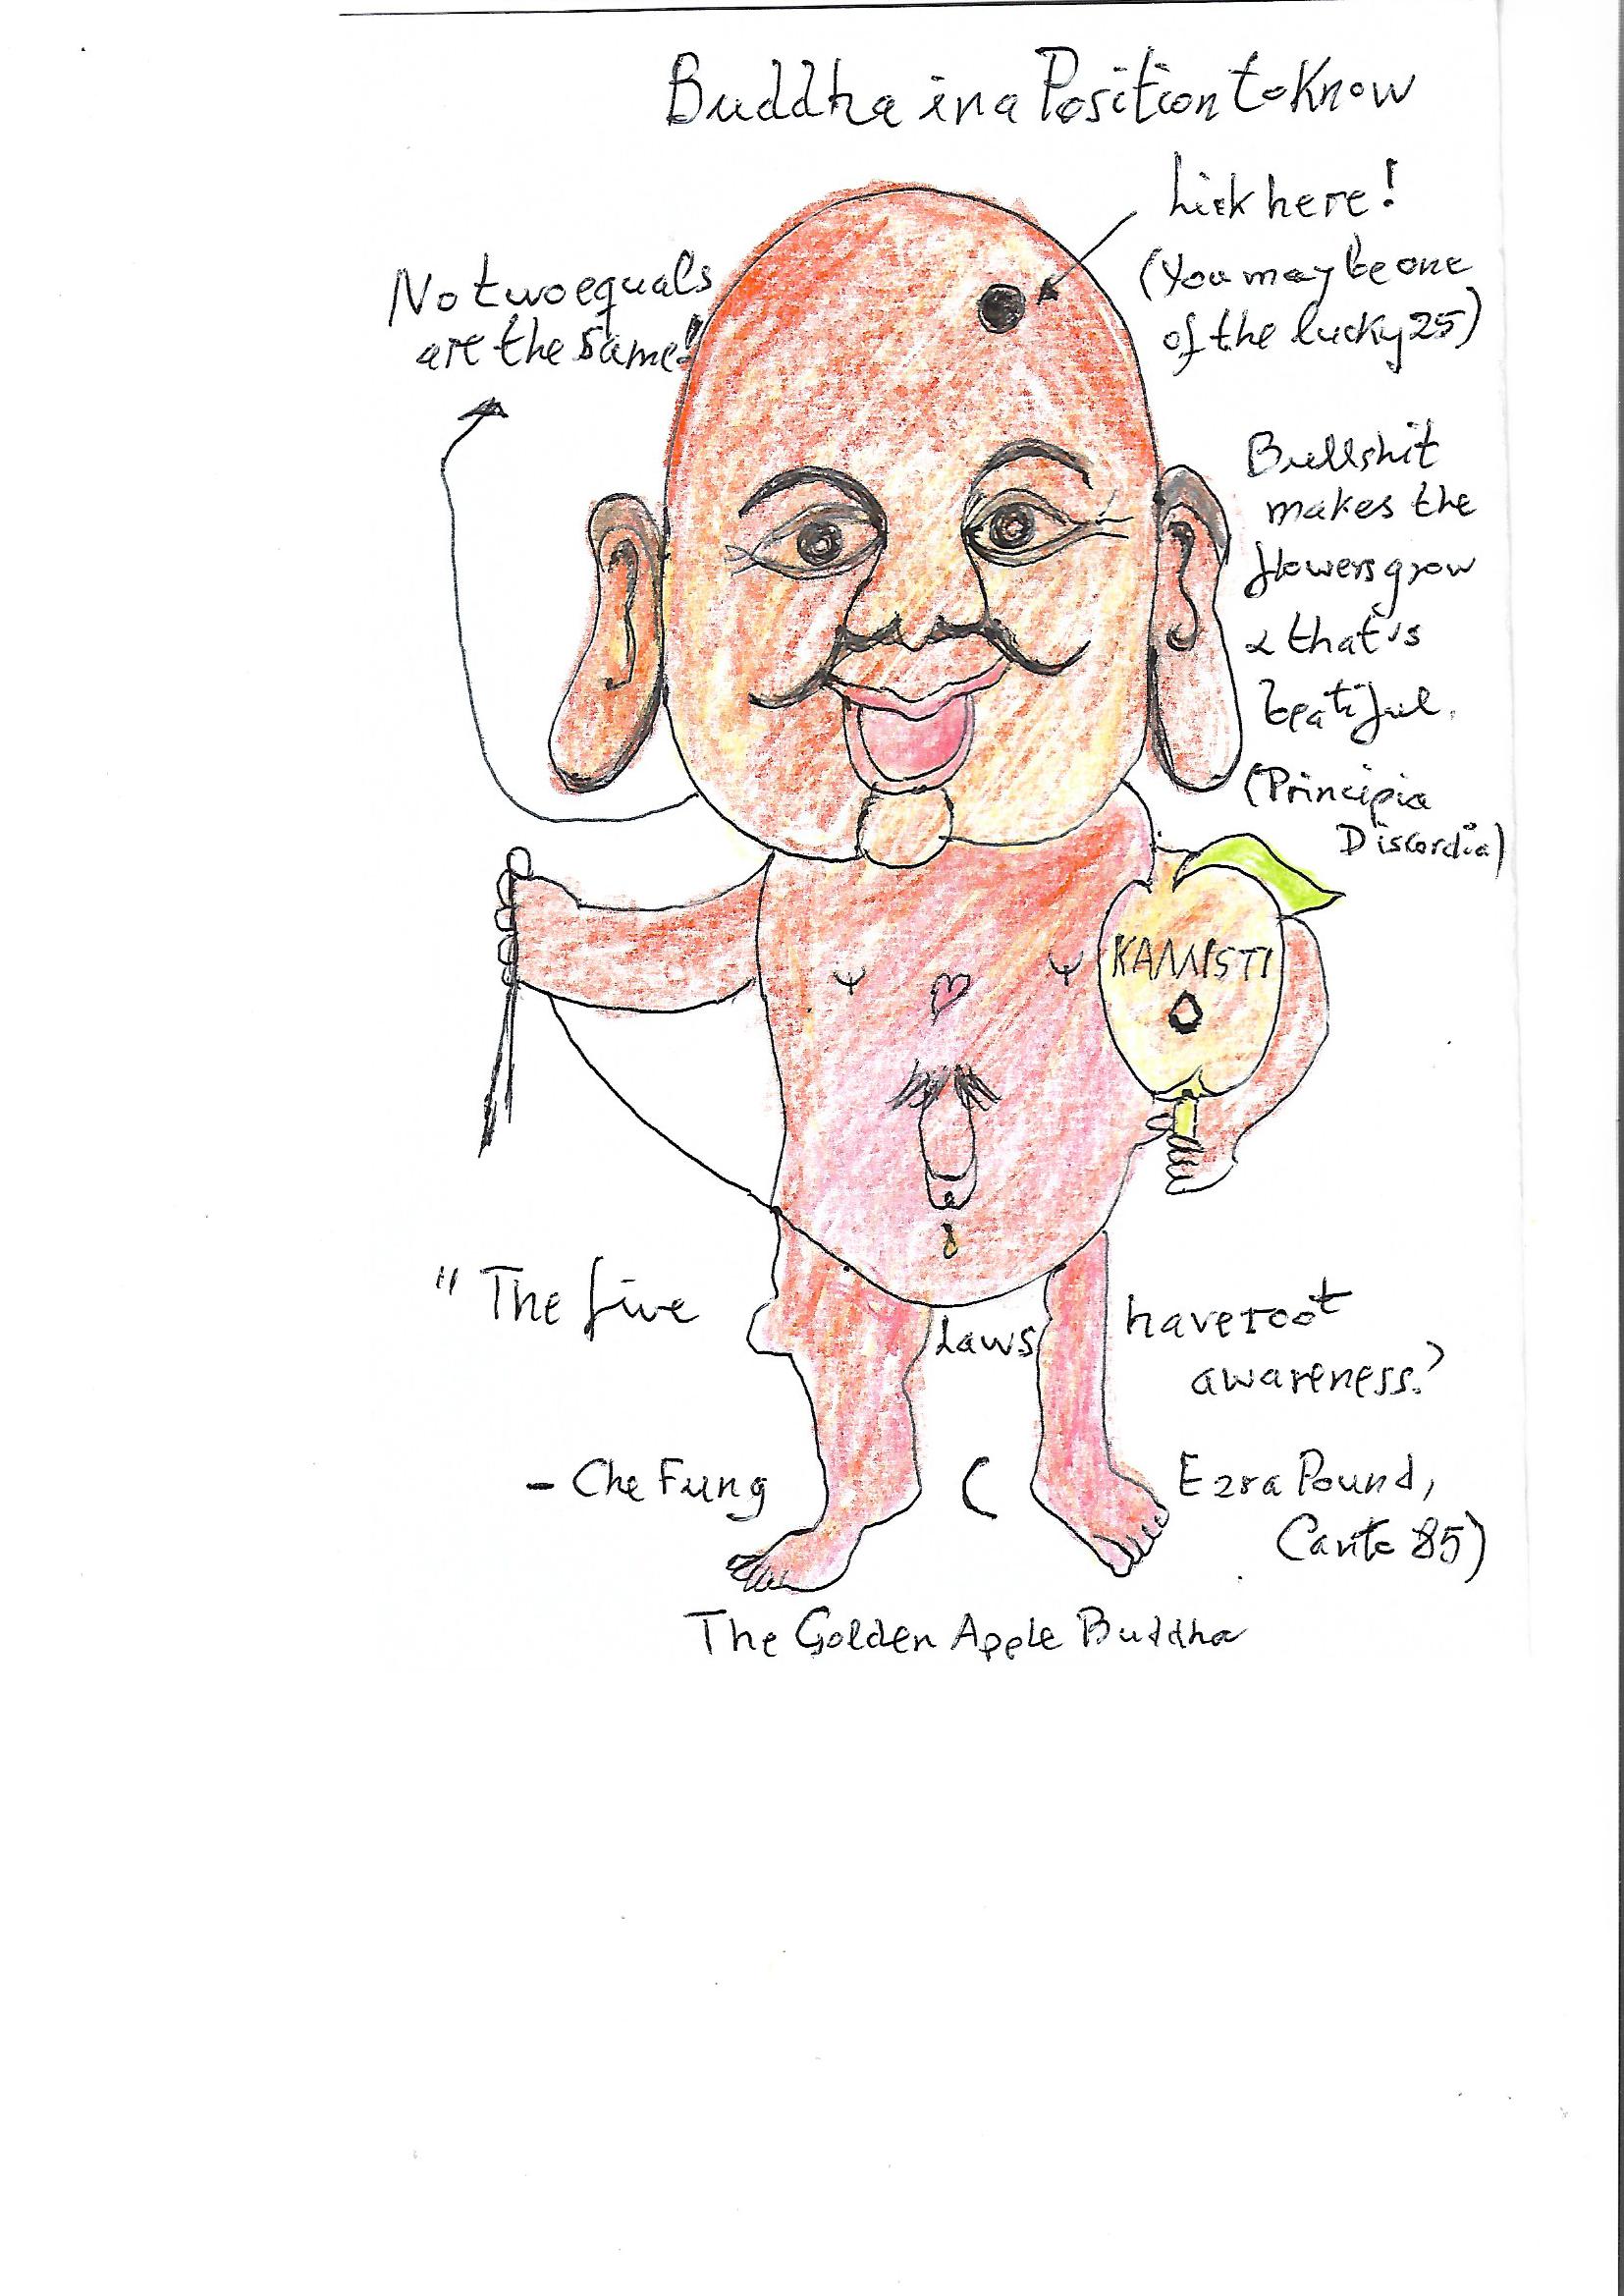 Buddha in a Position to Know
Lick here!
(You may be one
of the lucky 25)
No two equals
are the same!
Bullshit
makes the
flowers grow
& that's
beatiful.
(Principia
Discordia)
KAΛΛISTI
"The five Laws have root
awareness."
- Che Fung ( Ezra Pound,
Canto 85)
The Golden Apple Buddha